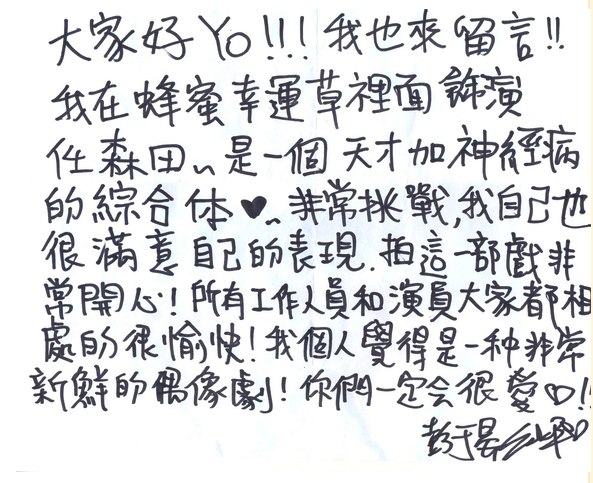 大家好Yo!!!我也來留言!!
我在蜂蜜幸運草裡面飾演
任森田~是一個天才加神經病
的綜合体♥~非常挑戰,我自己也
很滿意自己的表現.拍這一部戲非
常開心!所有工作人員和演員大家都相
處的很愉快!我個人覺得是一种非常
新鮮的偶像劇!你們一定会很愛♡!!
彭于晏